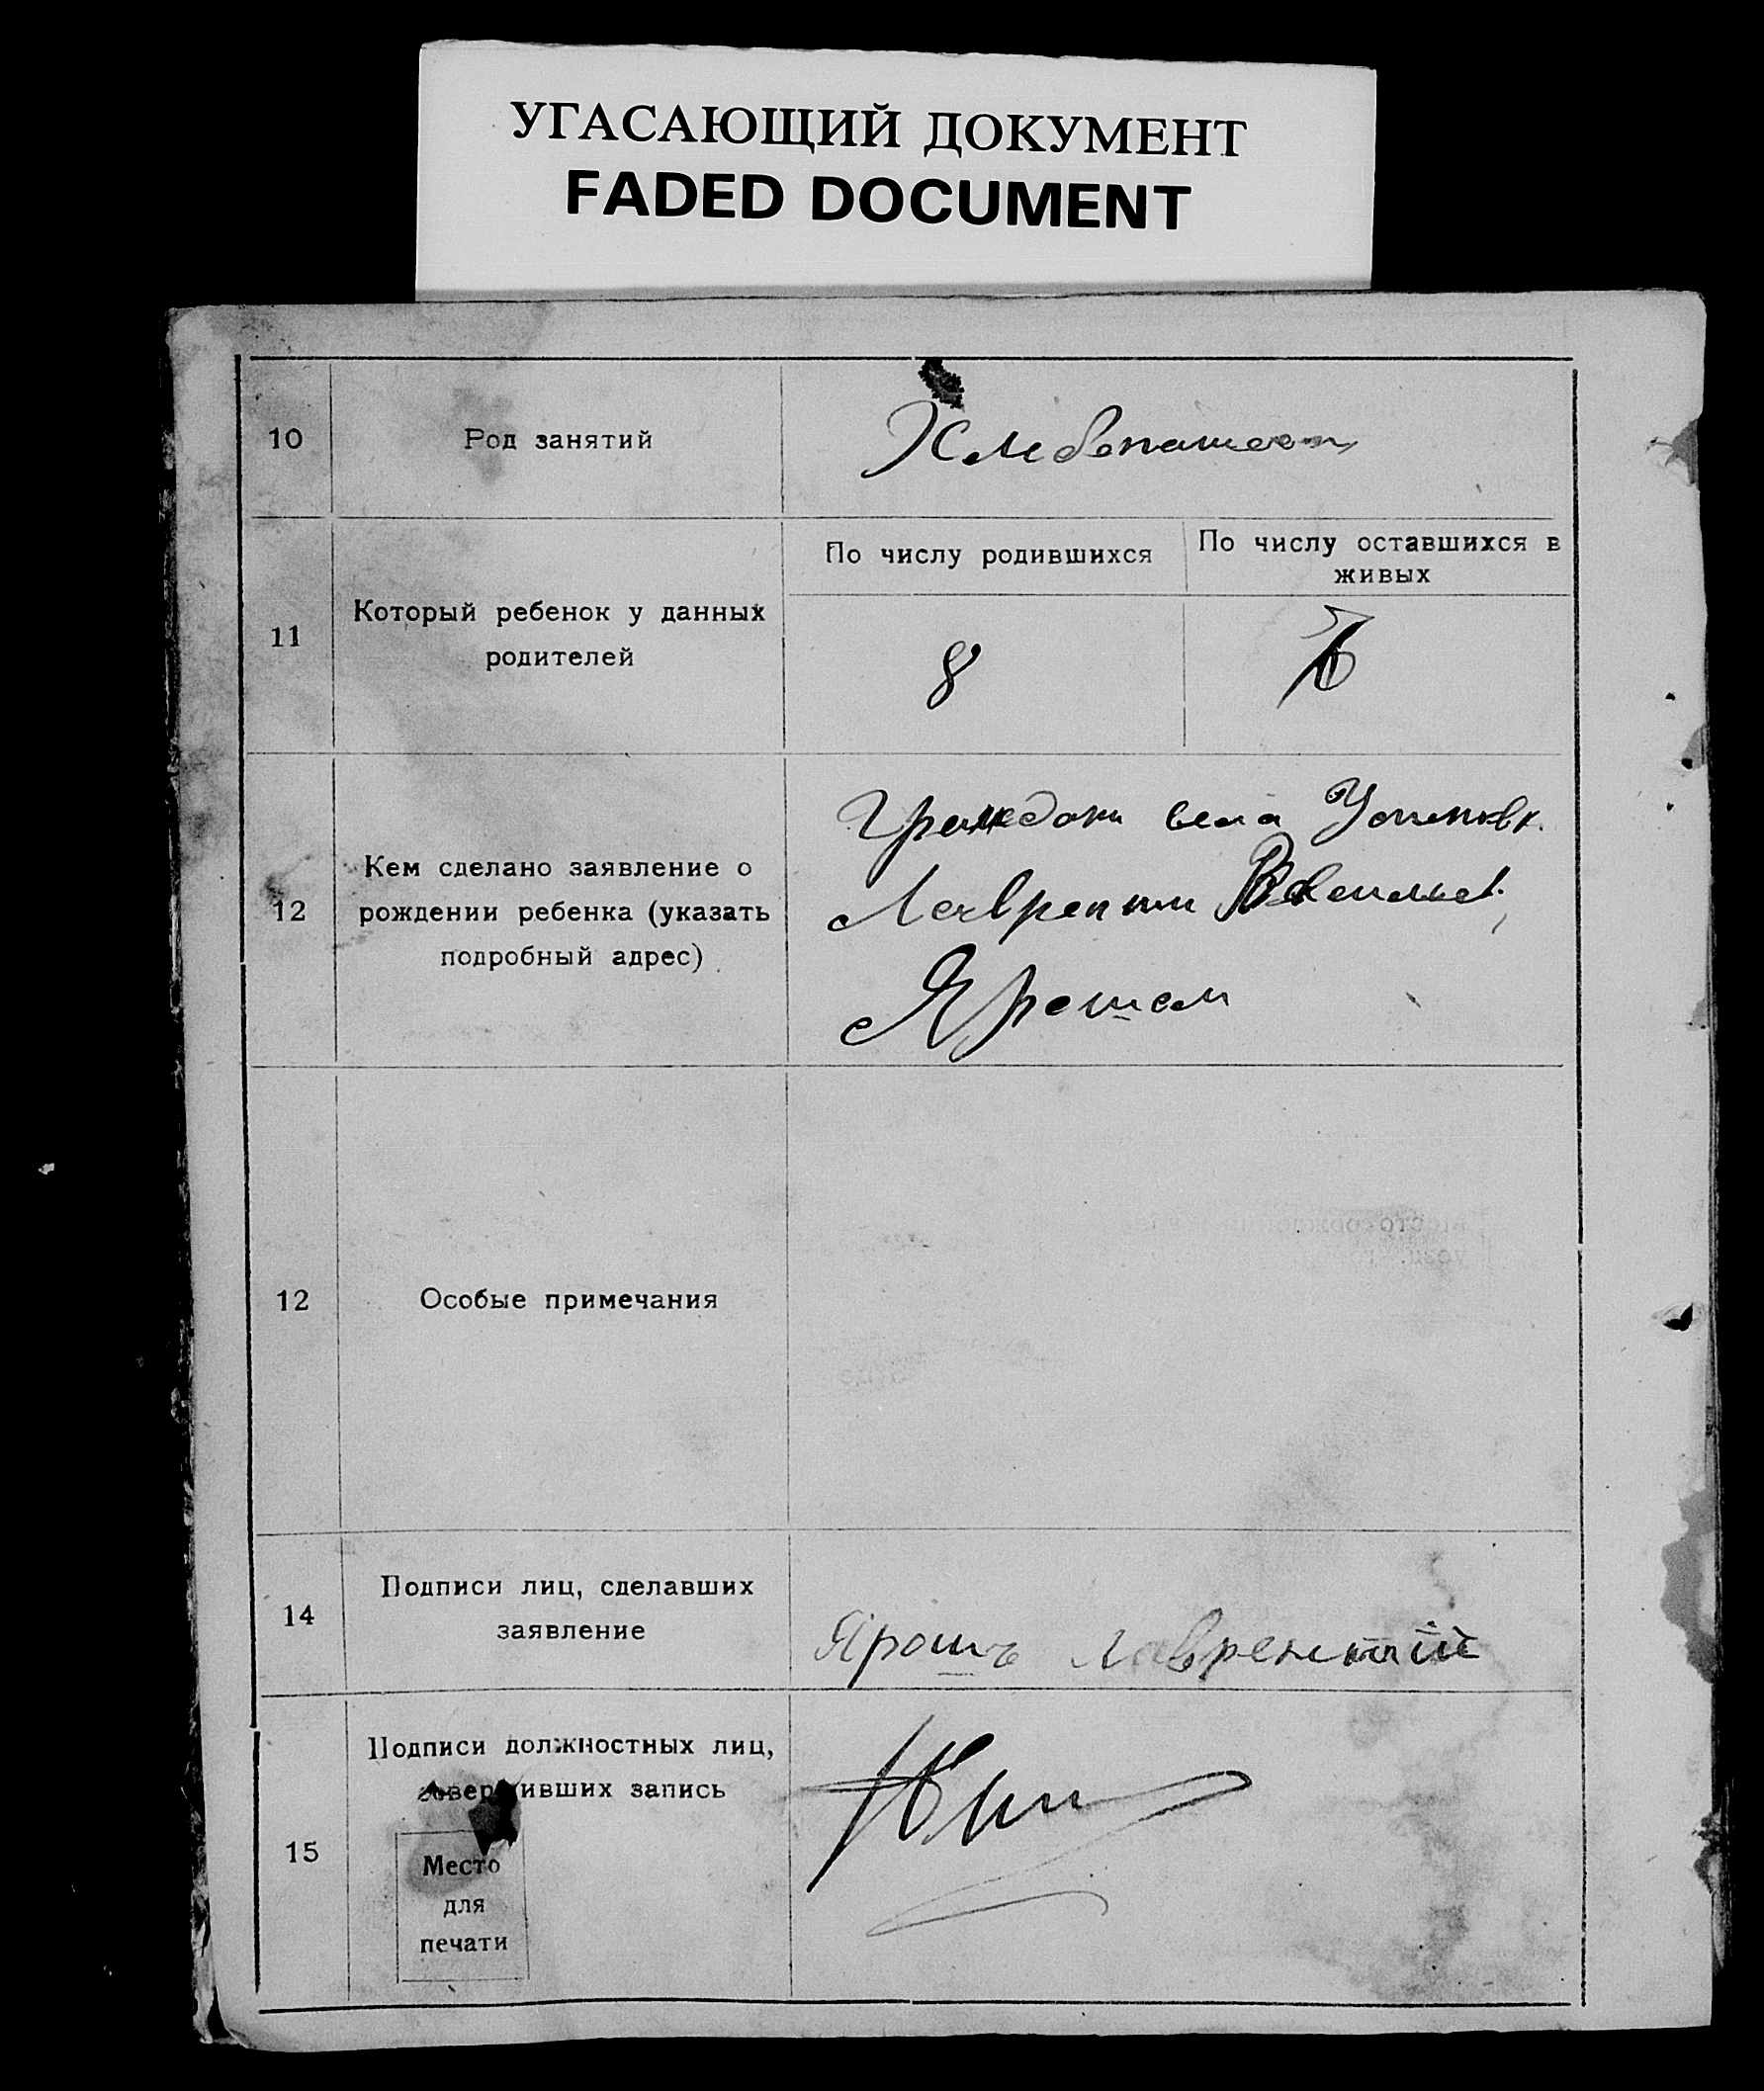 УГАСАЮЩИЙ ДОКУМЕНТ
FADED DOCUMENT
10
Род занятий
Хлебопашест
11
Который ребенок у данных
родителей
По числу родившихся
По числу оставшихся в
живых
8
12
Кем сделано заявление о
рождении ребенка (указать
подробный адрес)
села
Лаврентий
Ярошем
12
Особые примечания
14
Подписи лиц, сделавших
заявление
Ярошъ Лаврентий
15
Подписи должностных лиц,
совершивших запись
Место
для
печати